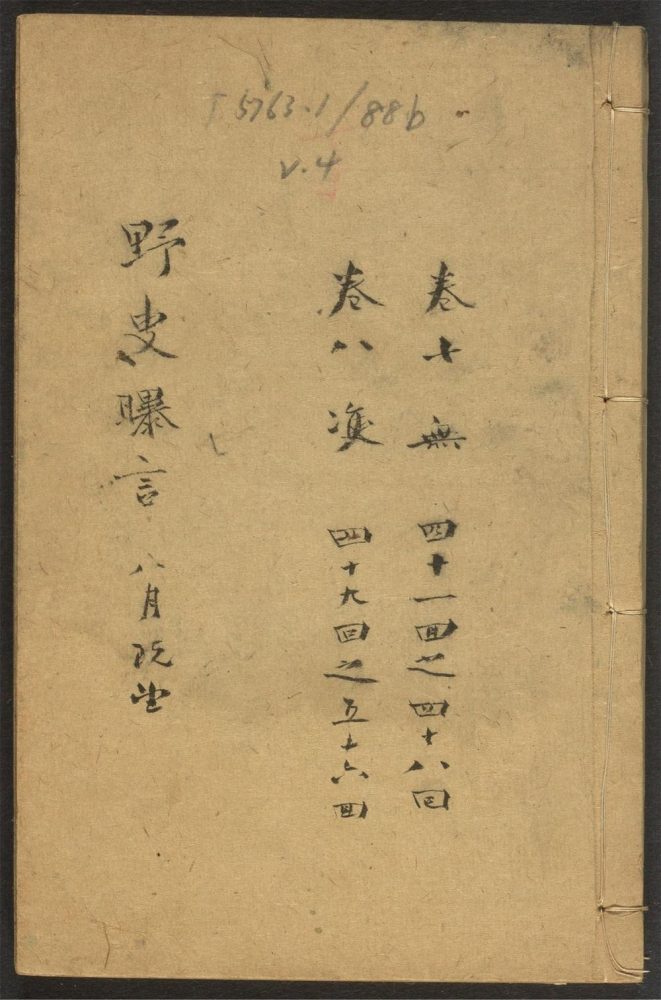 T 5763.1/88b
v.4
卷七 無 四十一回之四十八回
卷八 雙 四十九回之五十六回
野叟曝言 八月既望